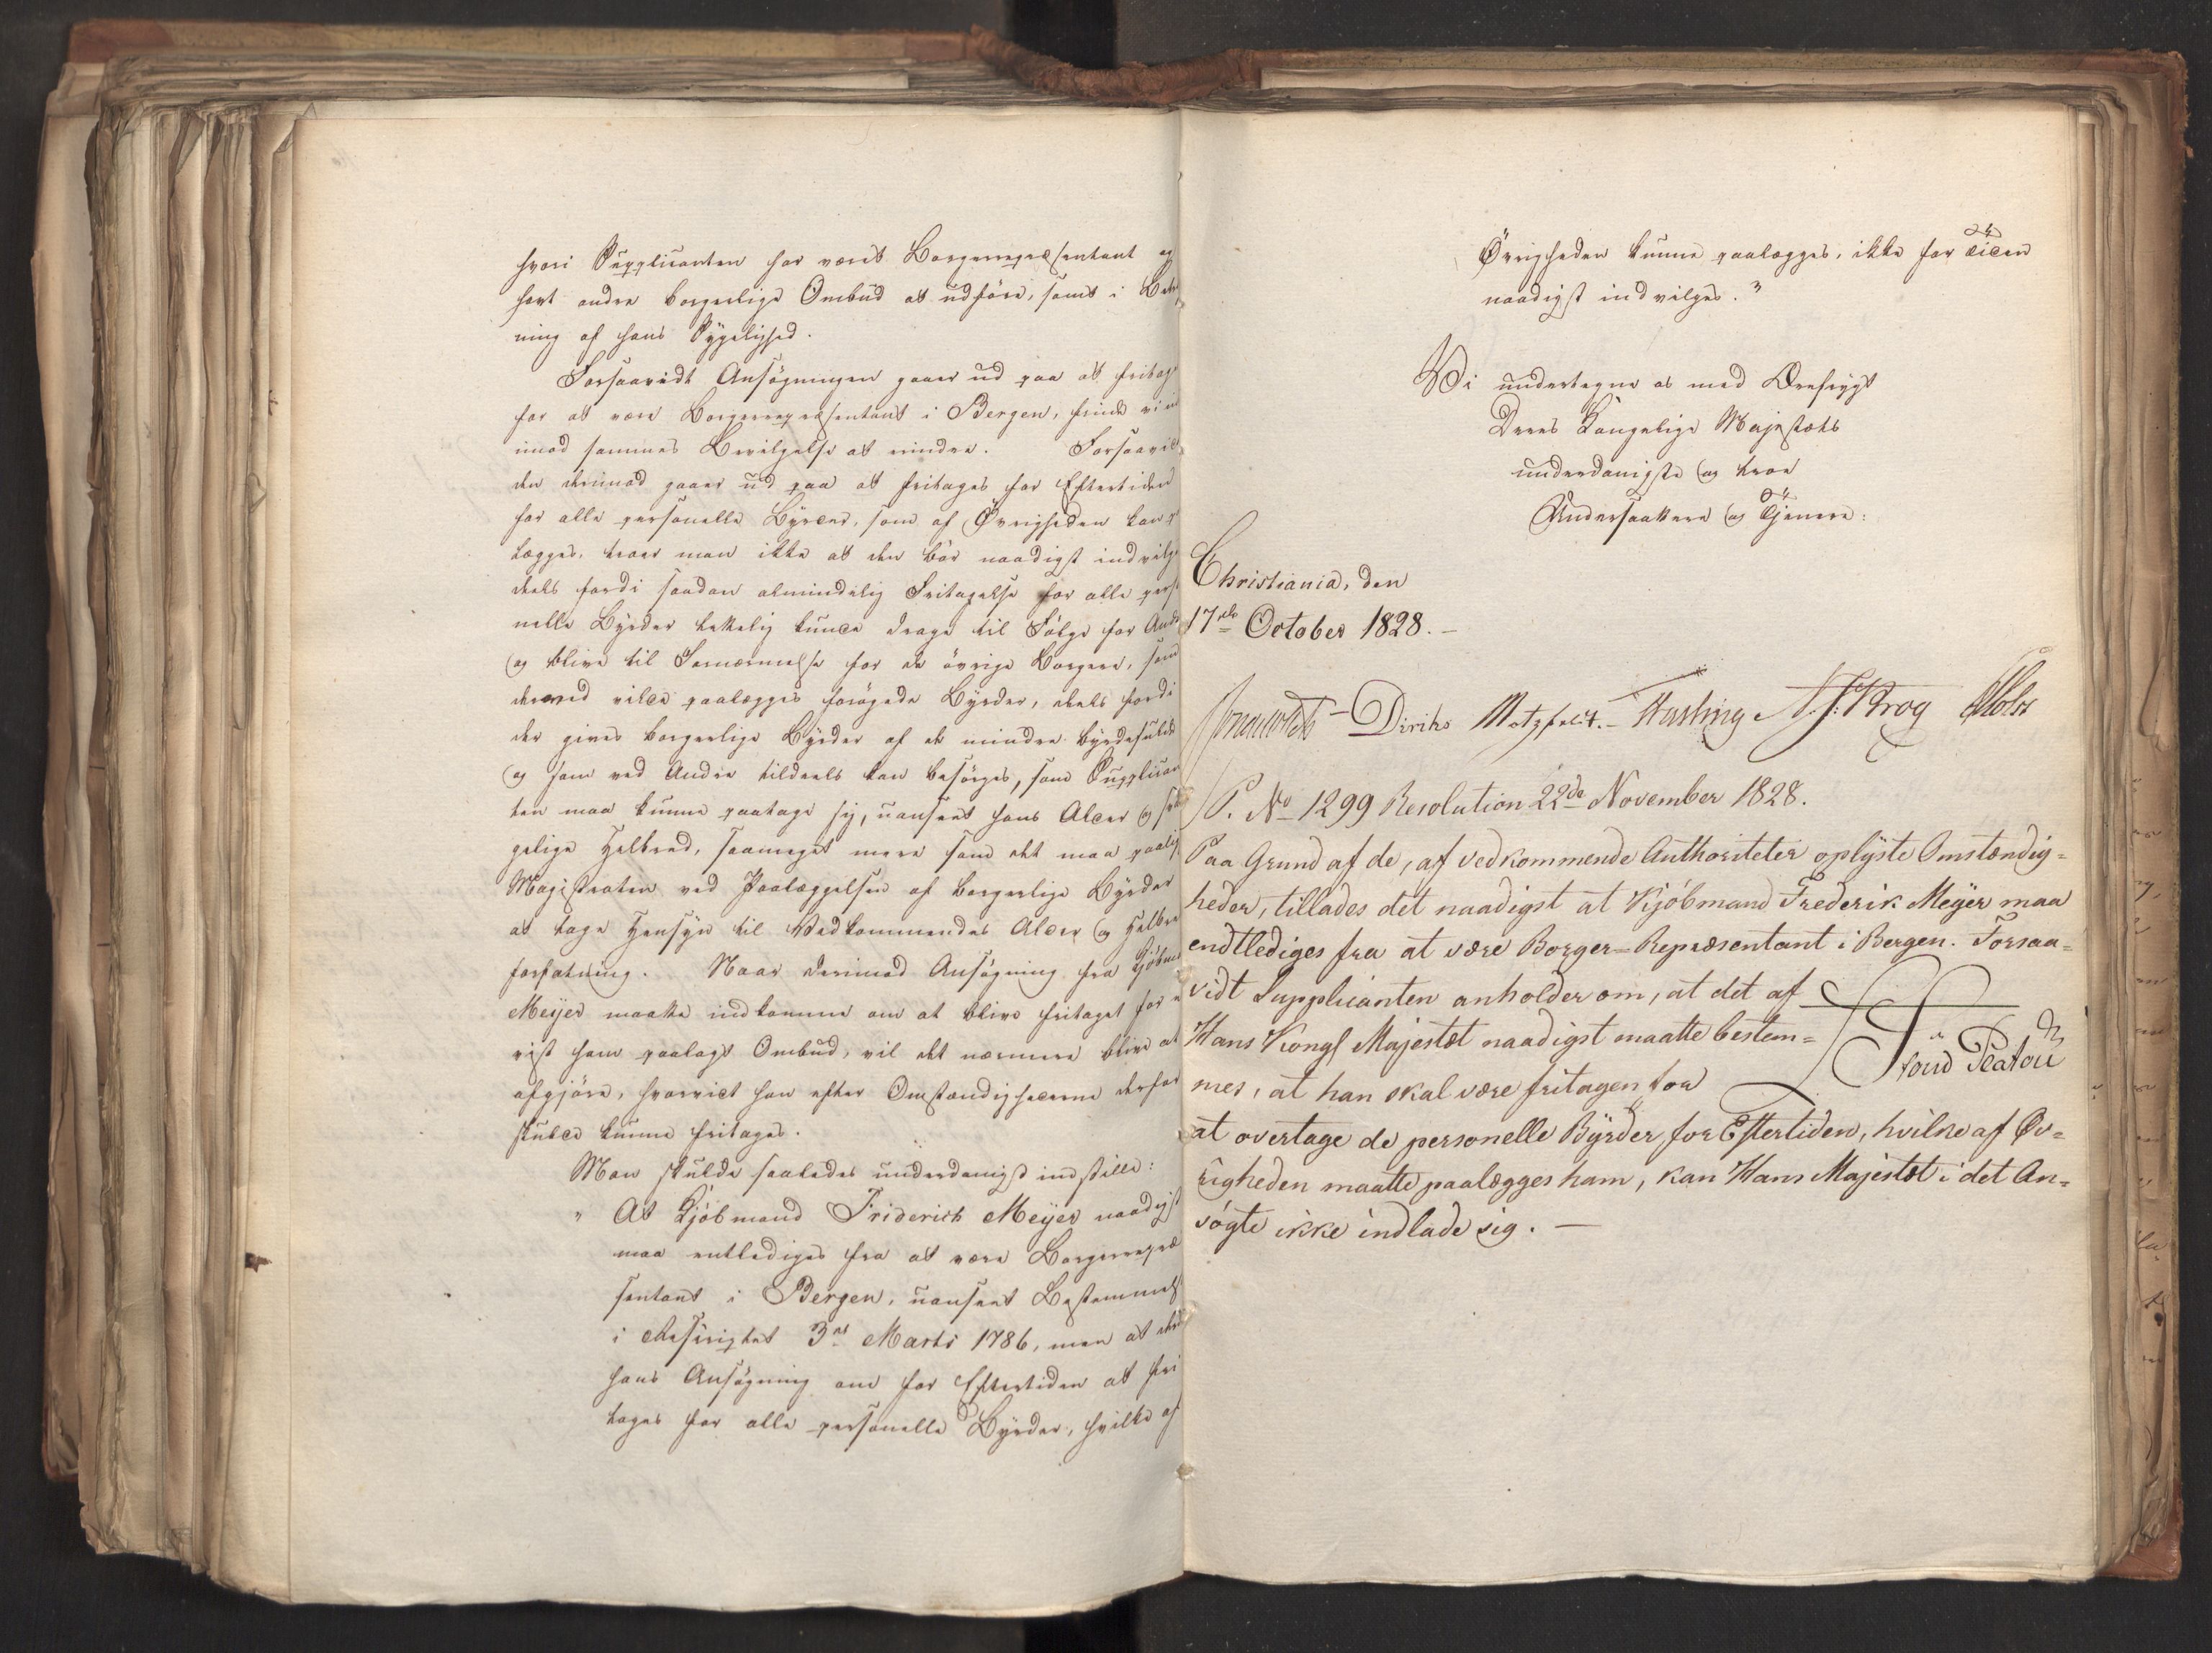 hvori Supplicanten har været Borgerrepræsentant og
havt andre borgerlige Ombud at udføre, samt i Betragt
ning af hans Sygelighed.
Forsaavidt Ansøgningen gaaer ud paa at fritages
for at være Borgerrepræsentant i Bergen, finde vi in
imod sammes Bevilgelse at erindre. Forsaavidt
den derimod gaaer ud paa at fritages for Eftertiden
for alle personelle Byrder, som af Øvrigheden kan paa
lægges, troer man ikke at den bør naadigst indvilges
deels fordi saadan almindelig Fritagelse for alle perso
nelle Byrder lettelig kunde drage til Følge for Andre
og blive til Fornærmelse for de øvrige Borgere, som
derved vilde paalægges forøgede Byrder, deels fordi
der gives borgerlige Byrder af de mindre byrdefulde
og som ved Andre tildeels kan besørges, som Supplican
ten maa kunne paatage sig, uanseet hans Alder og sy
gelige Helbred, saameget mere som det maa paaligge
Magistraten ved Paalæggelsen af borgerlige Byrder
at tage Hensyn til Vedkommendes Alder og Helbreds
forfatning. Naar derimod Ansøgning fra Kjøbmand
Meyer maatte indkomme om at blive fritaget for et
vist ham paalagt Ombud, vil det nærmere blive at
afgjøre, hvorvidt han efter Omstændighederne derfor
skulde kunne fritages.
Man skulde saaledes underdanigst indstille:
" At Kjøbmand Friderich Meyer naadigst
maa entlediges fra at være Borgerrepræ
sentant i Bergen, uanseet Bestemmelsen
i Rescriptet 3die Marts 1786, men at
hans Ansøgning om for Eftertiden at fri
tages for alle personelle Byrder, hvilke af
Øvrigheden kunne paalægges, ikke for Tiden
naadigst indvilges."
Vi undertegne os med Ærefrygt
Deres Kongelige Majestæts
underdanigste og troe
Undersaattere og Tjenere:
Christiania, den
17de October 1828.
Diriks Motzfeldt. Fasting N. J. Krog Holst
P. No 1299 Resolution 22de November 1828.
Paa Grund af de, af vedkommende Authoriteter oplyste Omstændig=
heder, tillades det naadigst at Kjöbmand Frederik Meyer maa
endtlediges fra at være Borger=Repræsentant i Bergen. Forsaa=
vidt Supplicanten anholder om, at det af
Hans Kongl Majestæt naadigst maatte bestem=
mes, at han skal være fritagen for
at overtage de personelle Byrder for Eftertiden, hvilke af Öv=
righeden maatte paalægges ham, kan Hans Majestæt i det An=
søgte ikke indlade sig. —